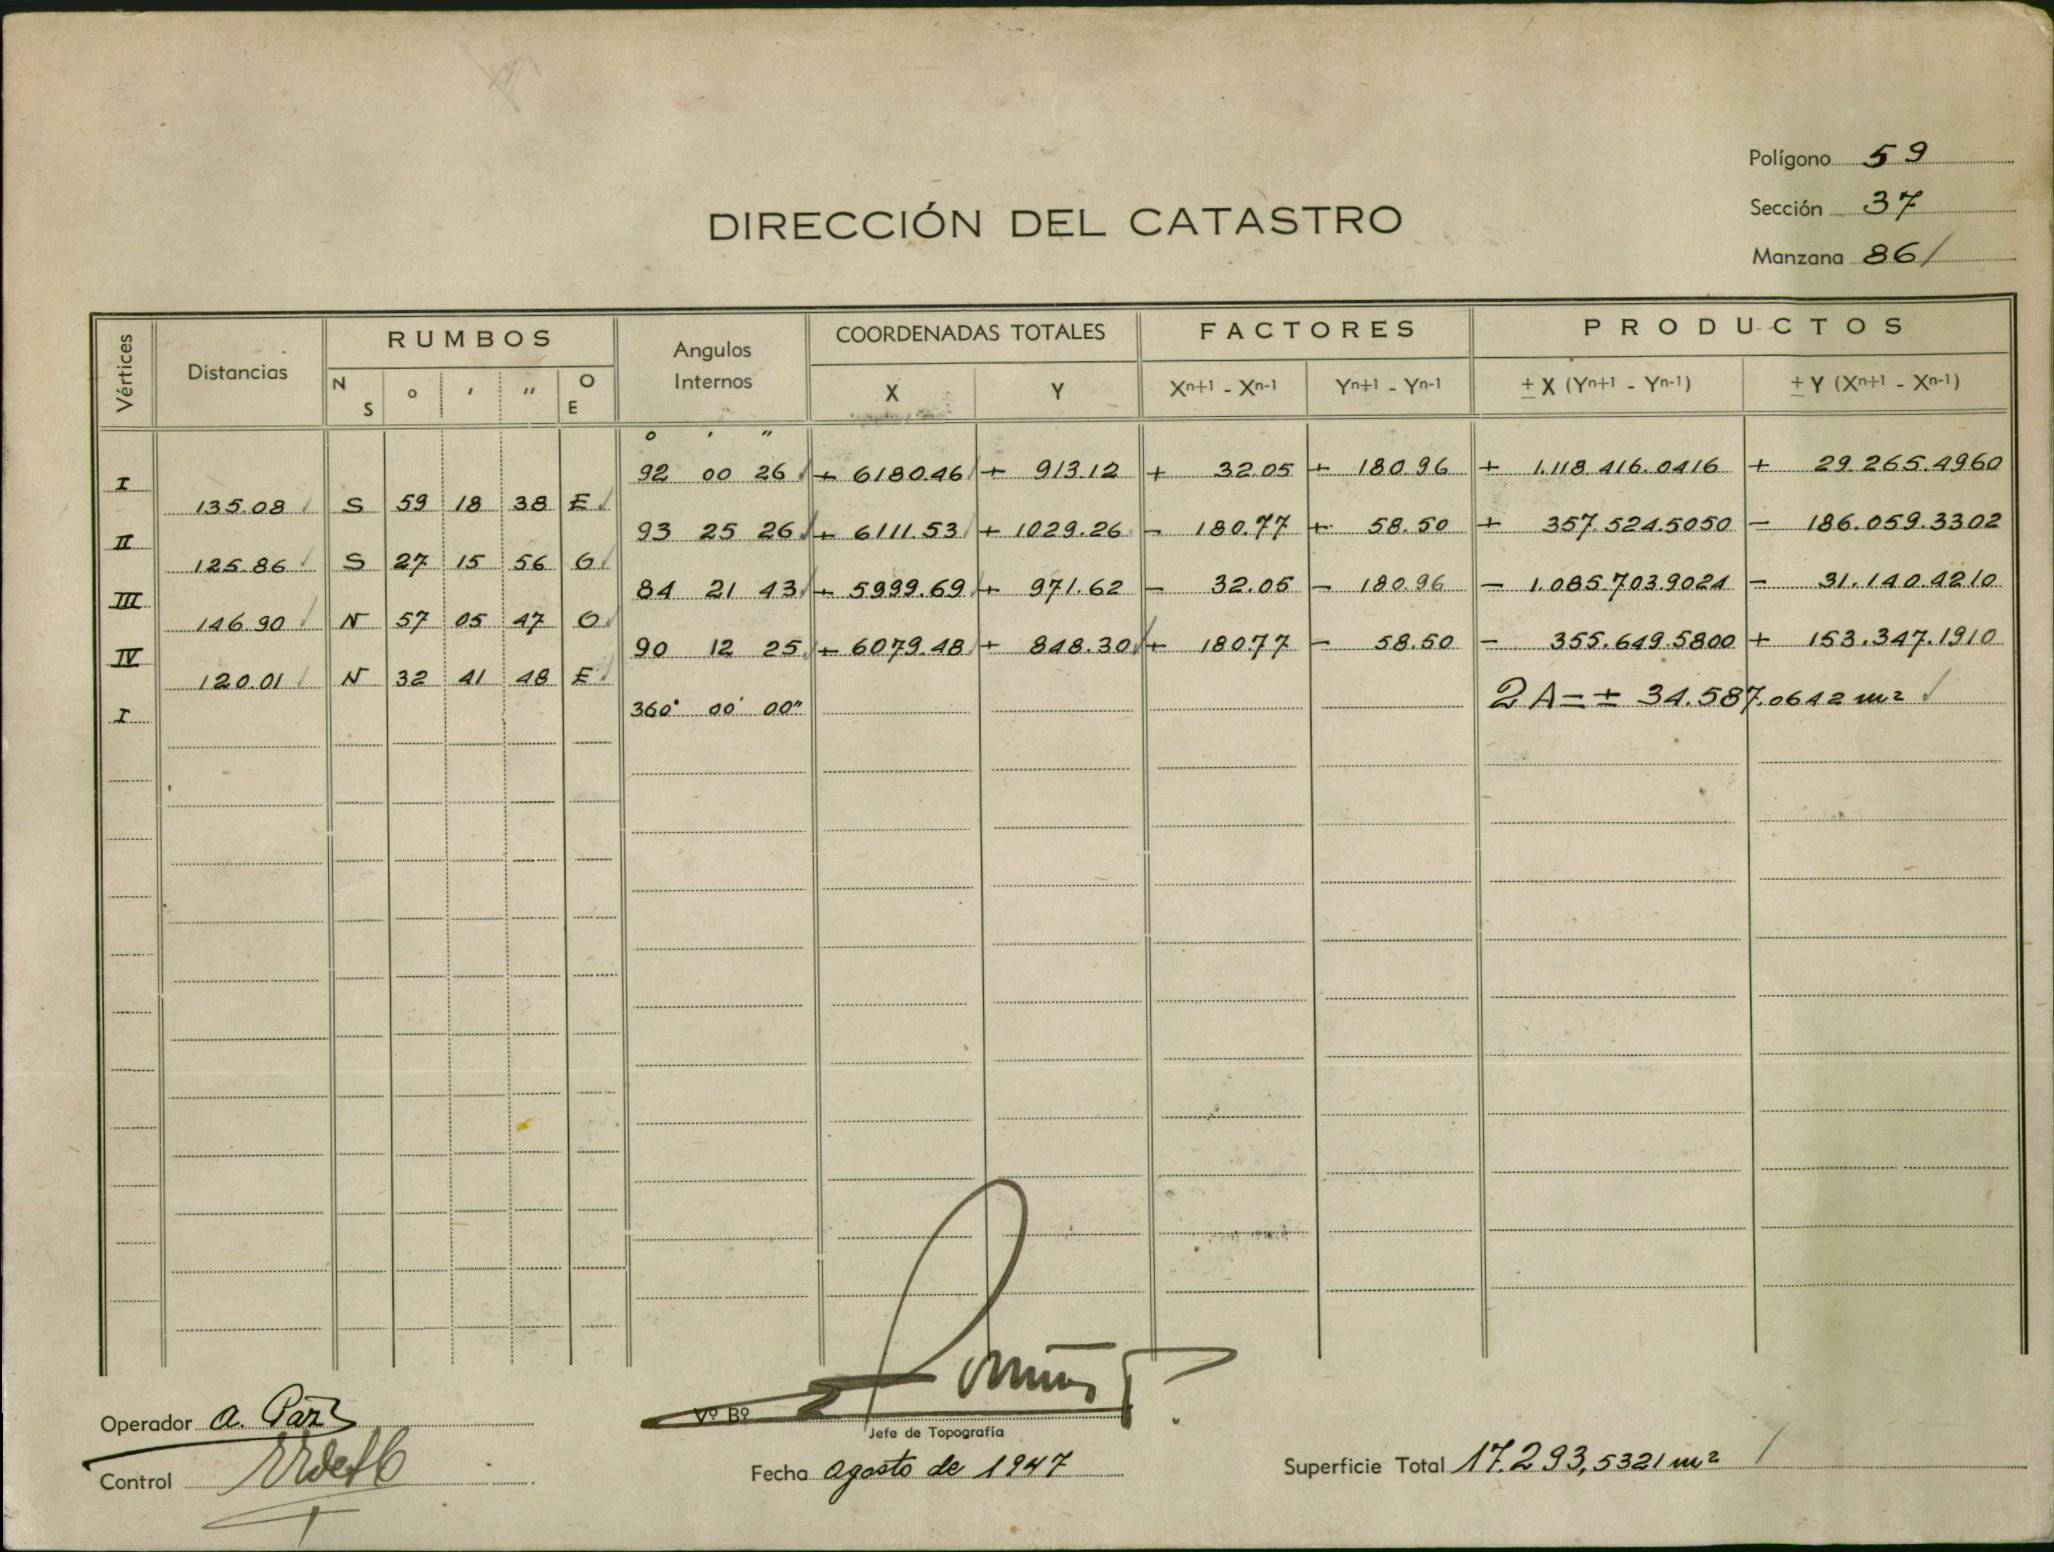 Polígono 59
Sección 37
Manzana 86
DIRECCIÓN DEL CATASTRO
Vértices Distancias RUMBOS Angulos Internos COORDENADAS TOTALES FACTORES PRODUCTOS
N S ° ' " O E X Y Xn+1 - Xn-1 Yn+1 - Yn-1 ± X (Yn+1 - Yn-1) ± Y (Xn+1 - Xn-1)
° ' "
I 92 00 26 + 6180.46 + 913.12 + 32.05 + 180.96 + 1.118.416.0416 + 29.265.4960
135.08 S 59 18 38 E
II 93 25 26 + 6111.53 + 1029.26 - 180.77 + 58.50 + 357.524.5050 - 186.059.3302
125.86 S 27 15 56 O
III 84 21 43 + 5999.69 + 971.62 - 32.05 - 180.96 - 1.085.703.9024 - 31.140.4210
146.90 N 57 05 47 O
IV 90 12 25 + 6079.48 + 848.30 + 180.77 - 58.50 - 355.649.5800 + 153.347.1910
120.01 N 32 41 48 E
I 360° 00' 00" 2A = ± 34.587.0642 m²
Operador A. Paz
Vº Bº
Jefe de Topografía
Control
Fecha agosto de 1947
Superficie Total 17.293,5321 m²